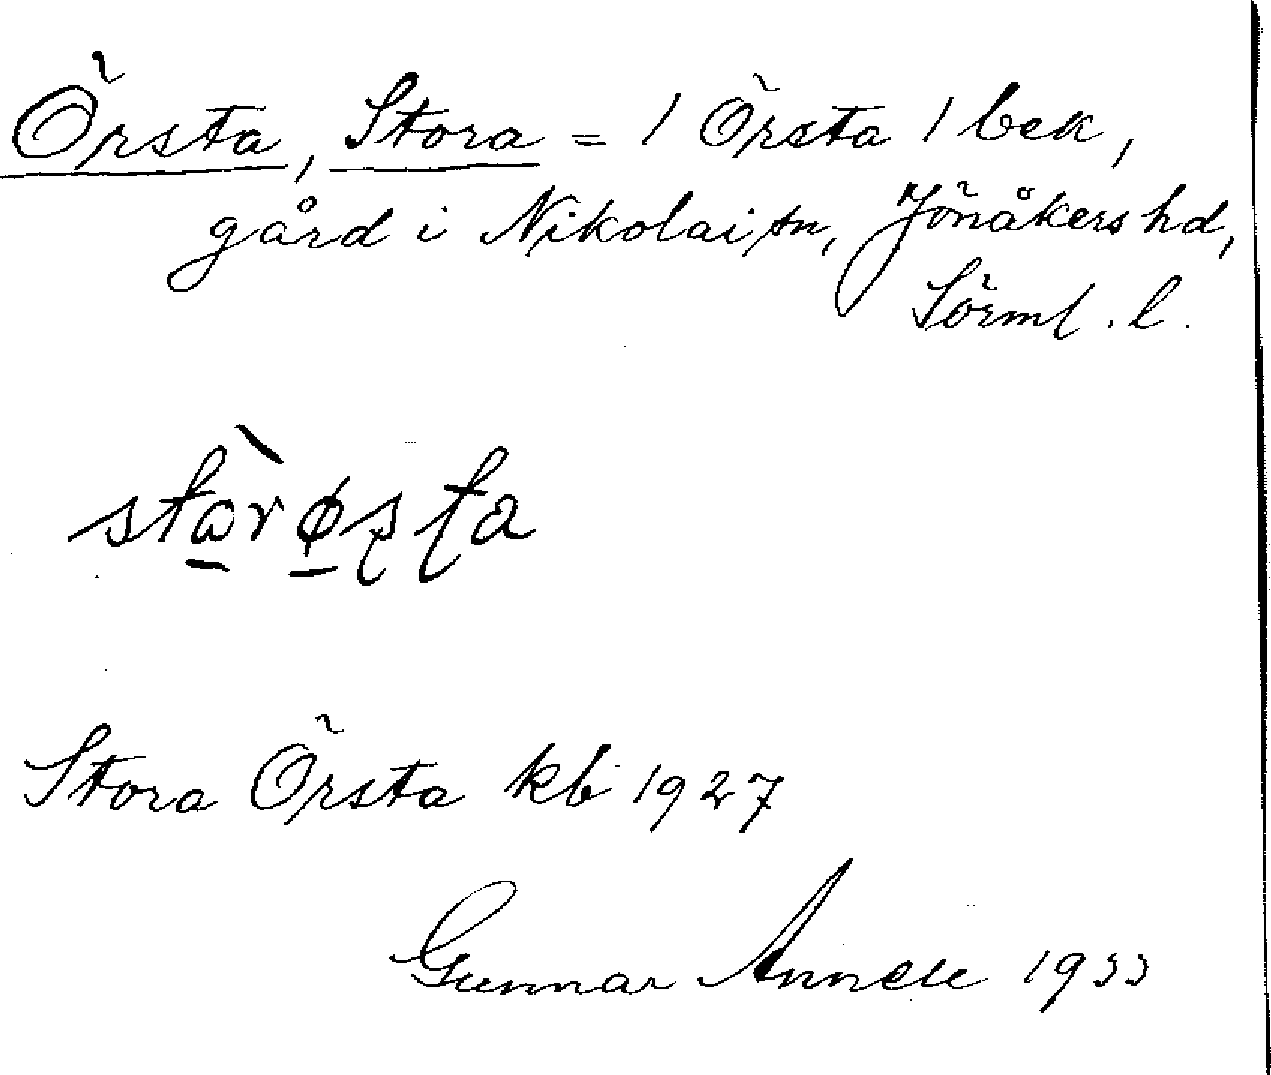 Örsta, Stora = / Örsta / bek,
gård i Nikolai sn, Jönåkers hd,
Sörml. l.
Stora Örsta kb 1927
Gunnar 1933